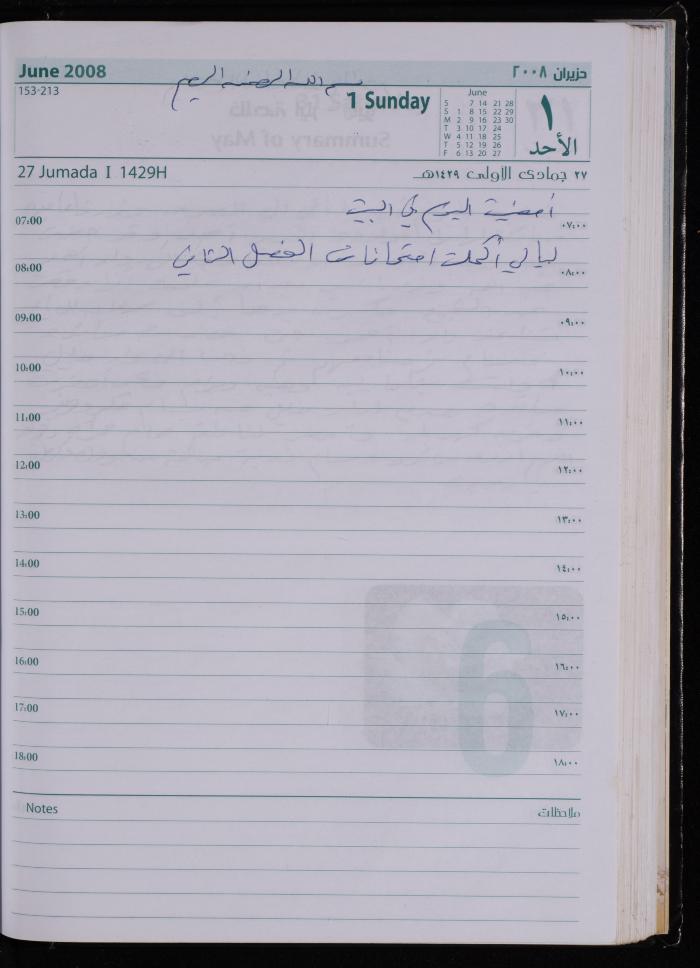 June 2008
حزيران ٢٠٠٨
بسم الله الرحمن الرحيم
153-213
1 Sunday
June
S 7 14 21 28
S 1 8 15 22 29
M 2 9 16 23 30
T 3 10 17 24
W 4 11 18 25
T 5 12 19 26
F 6 13 20 27
١
الأحد
27 Jumada I 1429H
٢٧ جمادى الاولى ١٤٢٩هـ
أمضيت اليوم في البيت
07:00 ٠٧:٠٠
ليالي أكملت امتحانات الفصل الثاني
08:00 ٠٨:٠٠
09:00 ٠٩:٠٠
10:00 ١٠:٠٠
11:00 ١١:٠٠
12:00 ١٢:٠٠
13:00 ١٣:٠٠
14:00 ١٤:٠٠
15:00 ١٥:٠٠
16:00 ١٦:٠٠
17:00 ١٧:٠٠
18:00 ١٨:٠٠
6
Notes
ملاحظات